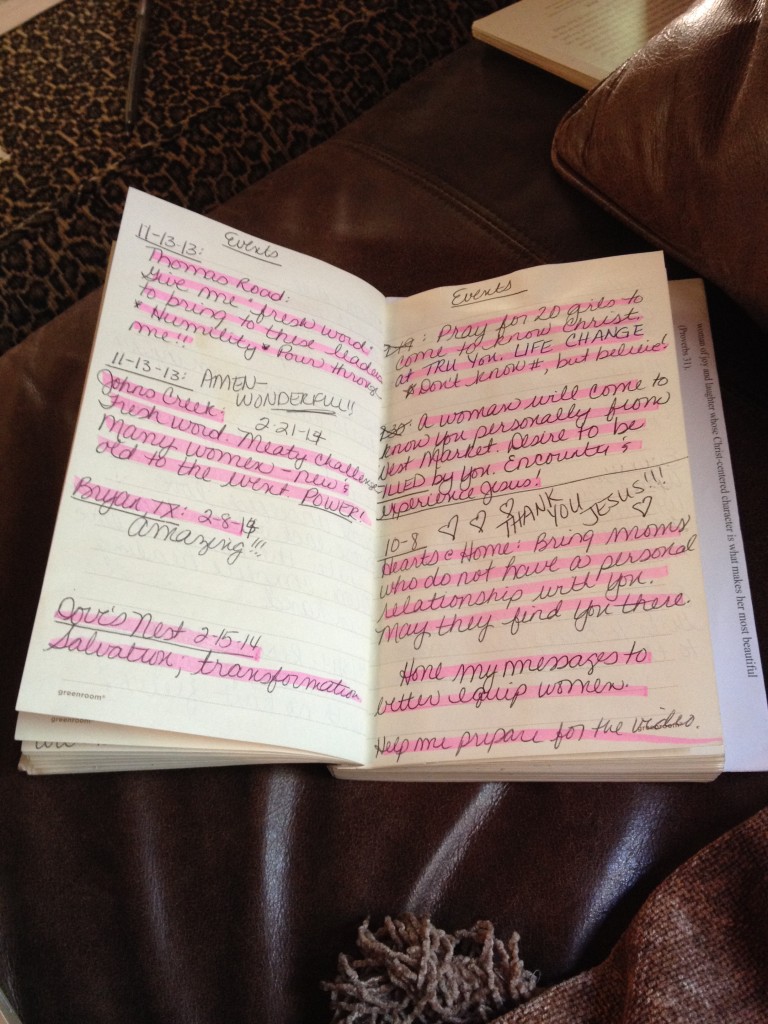 Events
11-13-13:
Thomas Road:
Give me a fresh word.
to bring to these leaders
* Humility * Pour through
me!!
11-13-13: AMEN-
WONDERFUL!!
Johns Creek: 2-21-14
Fresh word. Meaty challenge
Many women - new's
old to the event POWER!
Bryan, TX: 2-8-14
amazing!!!
Dove's Nest 2-15-14
Salvation, transformation
greenroom®
greenroom®
Events
: Pray for 20 girls to
come to know Christ
at TRU You. LIFE CHANGE
* Don't know #, but believe!
8-30: A woman will come to
know you personally from
West Market. Desire to be
FILLED by You. Encounter &
experience Jesus!
10-8 THANK YOU JESUS!!!
Hearts @ Home: Bring moms
who do not have a personal
relationship with You.
May they find You there.
Hone my messages to
better equip women.
Help me prepare for the video.
woman of joy and laughter whose Christ-centered character is what makes her most beautiful
(Proverbs 31).